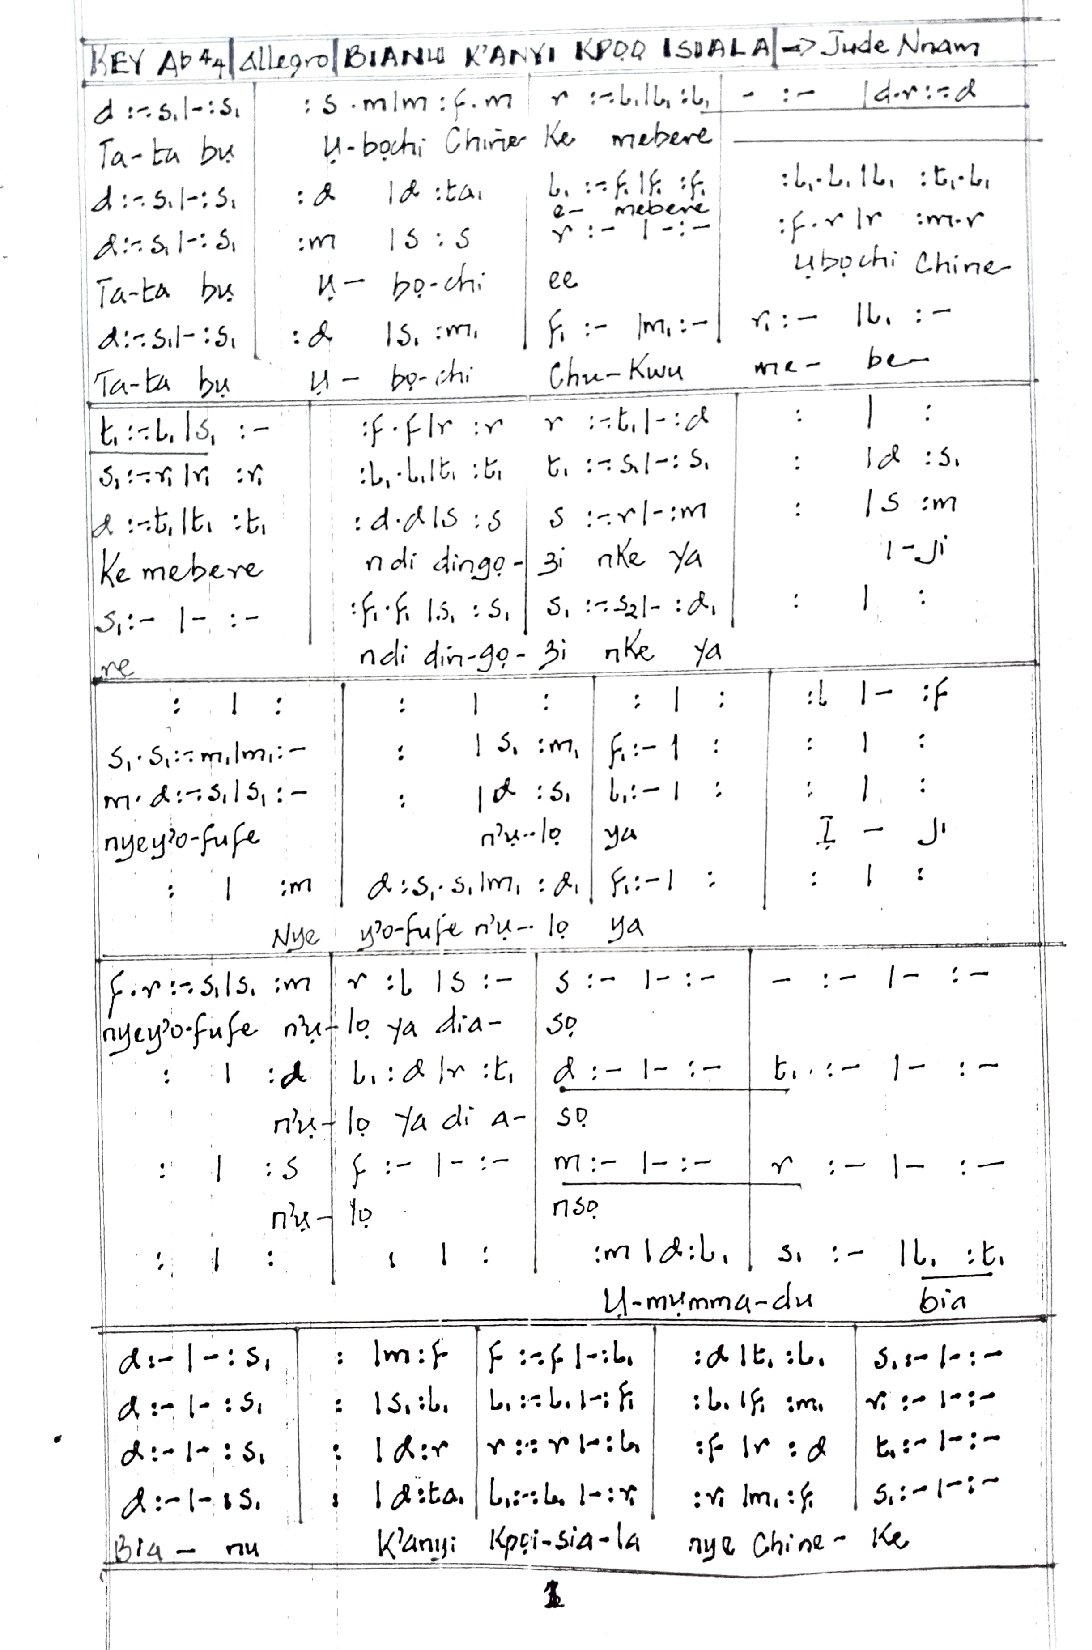 KEY Ab 4/4 | Allegro | BIANU K'ANYI KPỌỌ ISIALA | -> Jude Nnam
d :-.s₁|-:s₁ | :s.m|m :f.m | r :-.l₁|l₁ :l₁ | - :- |d.r:-.d
Ta-ta bụ Ụ-bọchi Chine- Ke mebere
d:-.s₁|-:s₁ | :d |d :ta₁ | l₁ :-.f₁|f₁ :f₁ | :l₁.l₁|l₁ :t₁.l₁
e- mebere
d:-.s₁|-:s₁ | :m |s :s | r :- |-:- | :f.r|r :m.r
Ta-ta bụ Ụ- bọ-chi ee Ụbọchi Chine-
d:-.s₁|-:s₁ | :d |s₁ :m₁ | f₁ :- |m₁:- | r₁:- |l₁ :-
Ta-ta bụ Ụ- bọ-chi Chu-Kwu me- be-
t₁:-.l₁|s₁ :- | :f.f|r :r | r :-.t₁|-:d | : | :
s₁:-.r₁|r₁ :r₁ | :l₁.l₁|t₁ :t₁ | t₁ :-.s₁|-:s₁ | : |d :s₁
d:-.t₁|t₁ :t₁ | :d.d|s :s | s :-.r|-:m | : |s :m
Ke mebere ndi dingọ- zi nke ya I-ji
s₁:- |- :- | :f₁.f₁|s₁ :s₁ | s₁ :-.s₂|- :d₁ | : | :
re ndi din-gọ- zi nke ya
: | : | : | : | : | : | :l |- :f
s₁.s₁:-.m₁|m₁:- | : |s₁ :m₁ | f₁:- | : | : | :
m.d:-.s₁|s₁:- | : |d :s₁ | l₁:- | : | : | :
nyey'o-fufe n'ụ-lọ ya Ị - ji
: | :m | d:s₁.s₁|m₁ :d₁ | f₁:-| : | : | :
Nye y'o-fufe n'ụ- lọ ya
f.r:-.s₁|s₁ :m | r :l |s :- | s :- |- :- | - :- |- :-
nyey'o-fufe n'ụ- lọ ya dia- sọ
: | :d | l₁:d|r :t₁ | d :- |- :- | t₁ :- |- :-
n'ụ- lọ ya di a- sọ
: | :s | f :- |- :- | m:- |- :- | r :- |- :-
n'ụ- lọ nsọ
: | : | : | : | :m|d:l₁ | s₁ :- |l₁ :t₁
Ụ-mụmma-du bia
d:-|-:s₁ | : |m:f | f :-.f|-:l₁ | :d|t₁ :l₁ | s₁:-|-:-
d:-|-:s₁ | : |s₁:l₁ | l₁:-.l₁|-:f₁ | :l₁|f₁ :m₁ | r₁:-|-:-
d:-|-:s₁ | : |d:r | r:-.r|-:l₁ | :f|r :d | t₁:-|-:-
d:-|-:s₁ | : |d:ta₁ | l₁:-.l₁|-:r₁ | :r₁|m₁:f₁ | s₁:-|-:-
Bia- nu K'anyi Kpọi-sia-la nye Chine- Ke
1